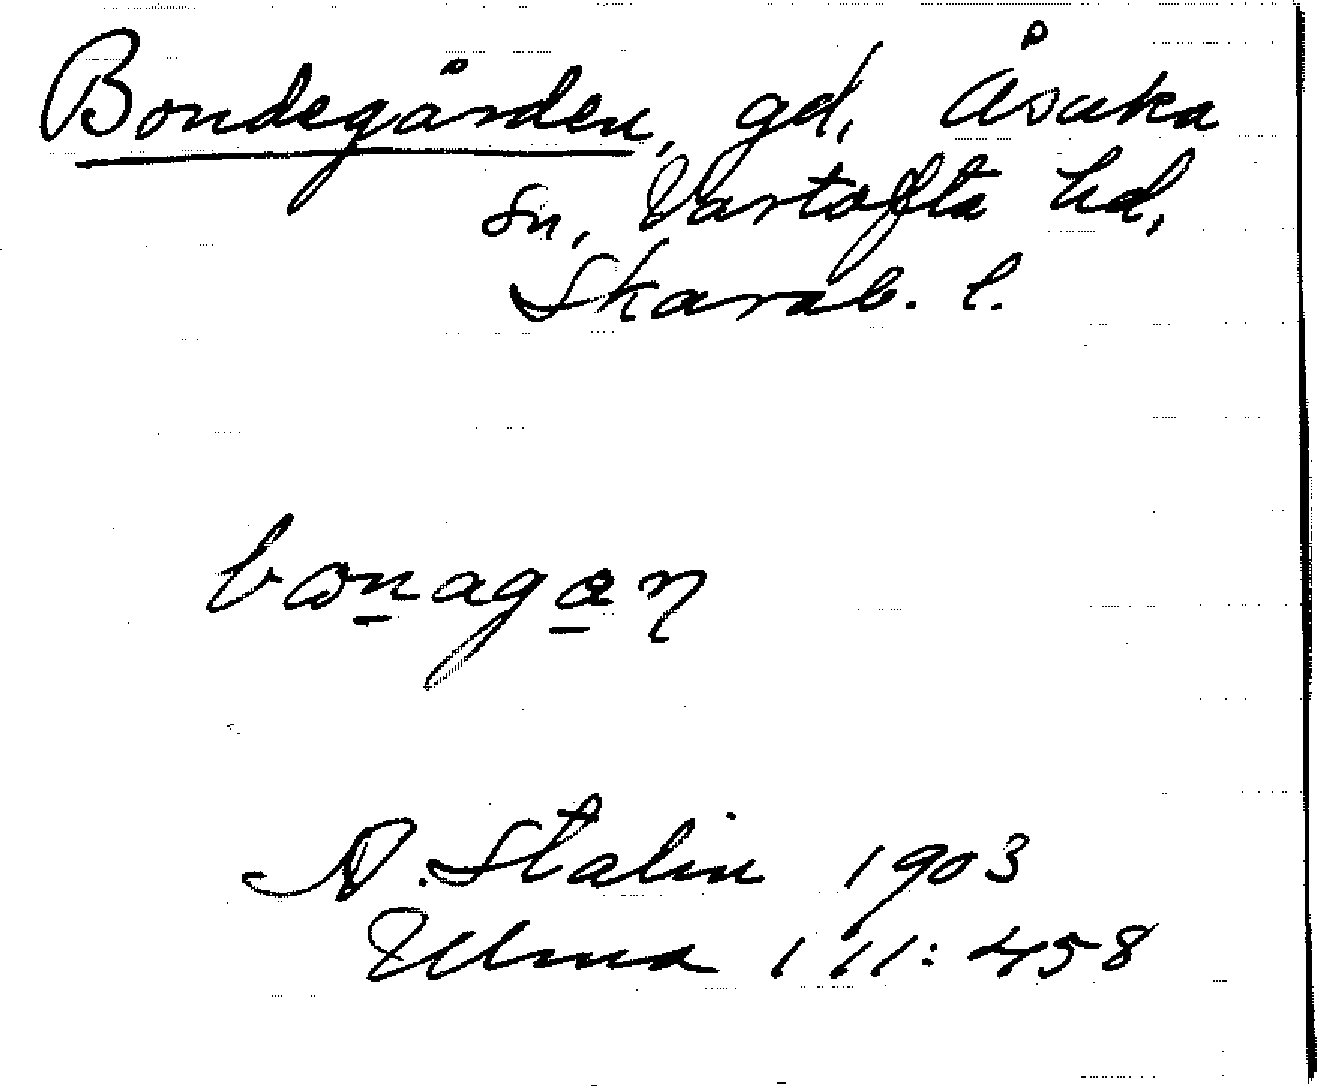 Bondegården, gd, Åsaka
sn, Vartofta hd,
Skarab. l.
bonagan
A. Stalin 1903
Ulma 111:458